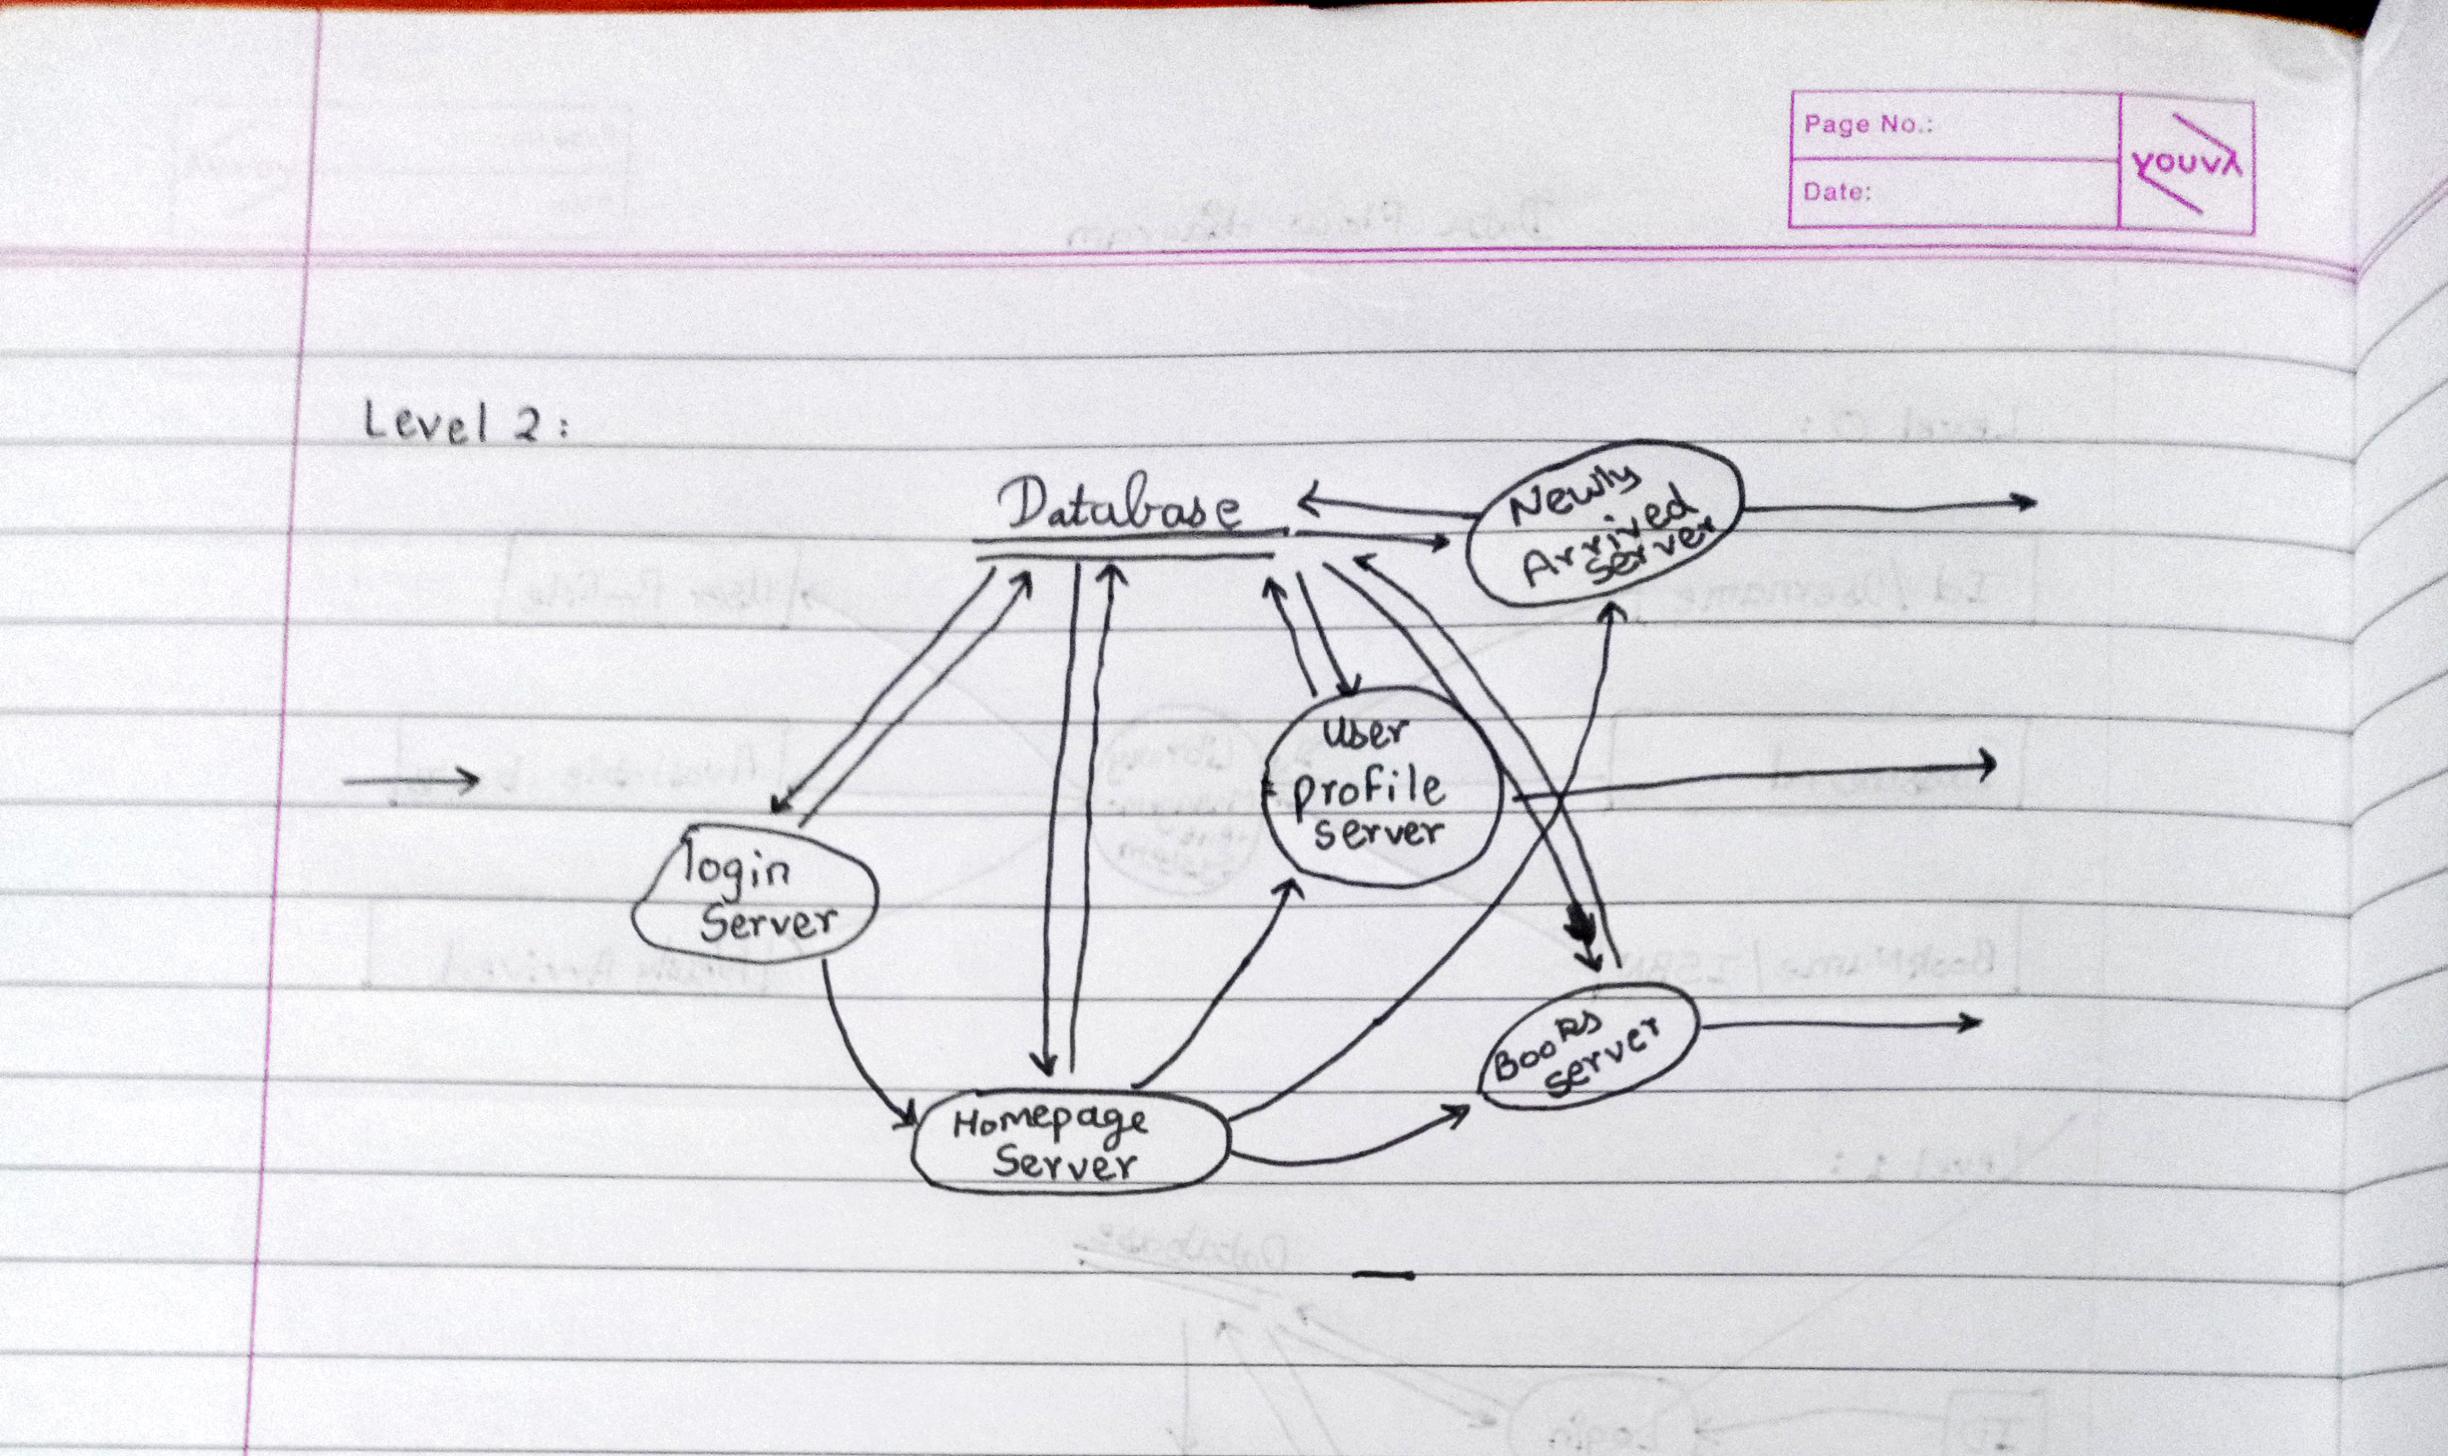 Page No.:
Date:
youva
Level 2:
Database
Newly
Arrived
server
User
profile
server
login
Server
Books
server
Homepage
Server